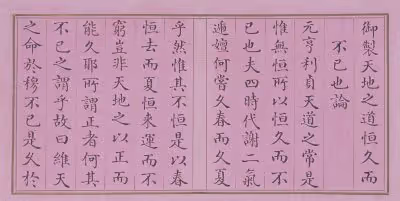 御製天地之道恒久而
不已也論
元亨利貞天道之常是
惟無恒所以恒久而不
已也夫四時代謝二氣
遞嬗何嘗久春而久夏
乎然惟其不恒是以春
恒去而夏恒來運而不
窮豈非天地之以正而
能久耶所謂正者何其
不已之謂乎故曰維天
之命於穆不已是久於